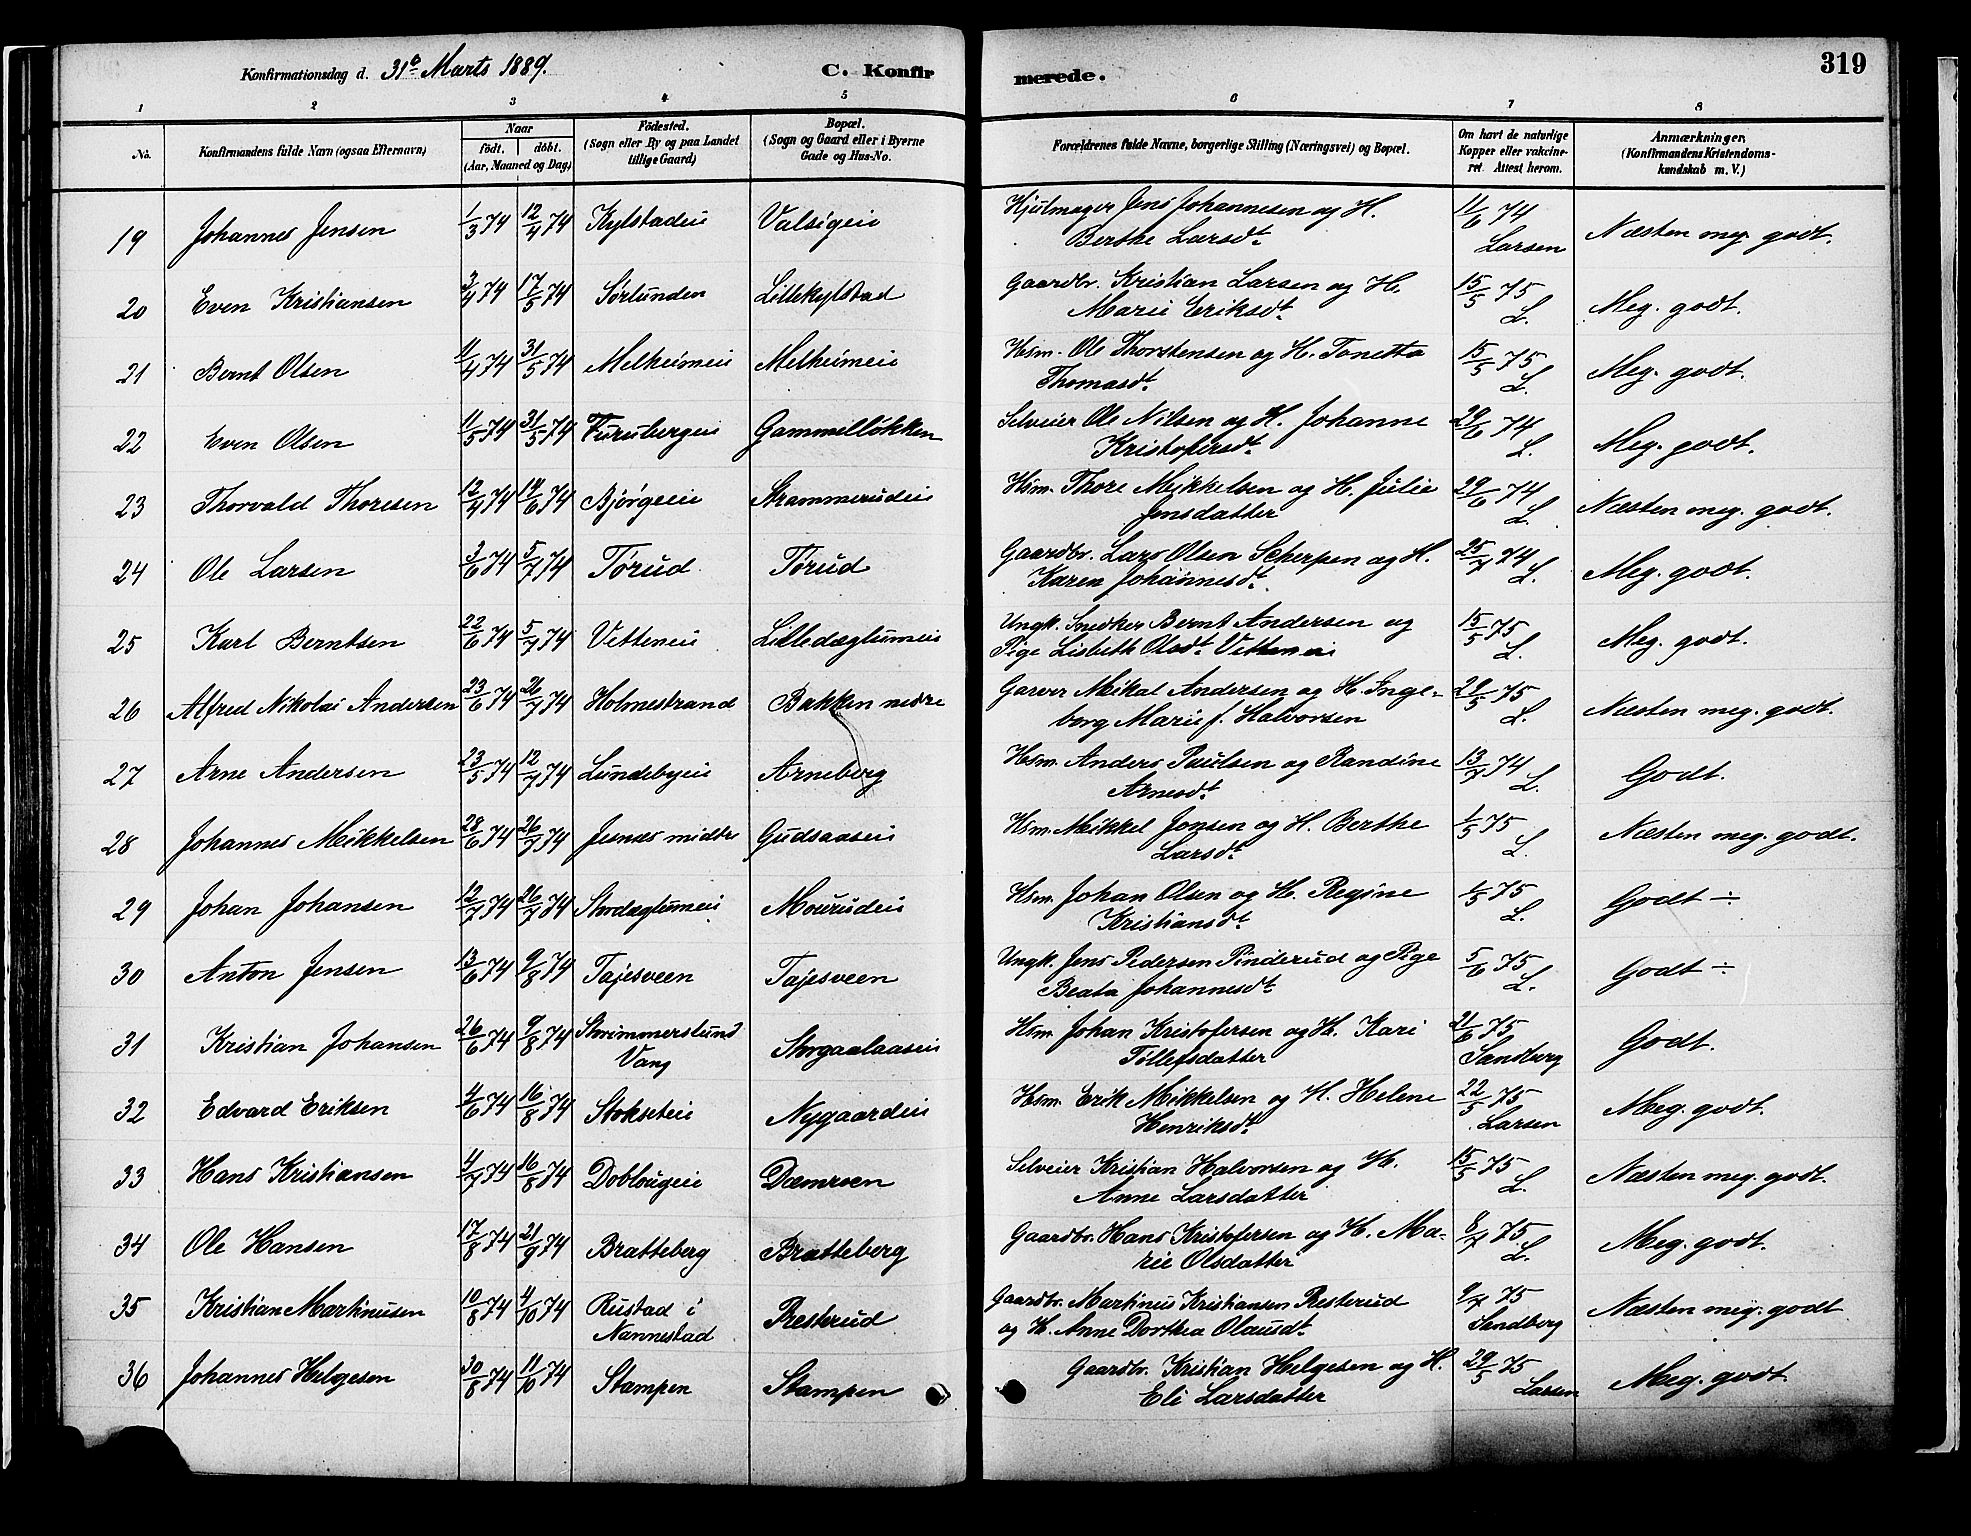 319
Konfirmationsdag d. 31te Marts 1889. C. Konfirmerede.
1 2 3 4 5 6 7 8
No. Konfirmandens fulde Navn (ogsaa Efternavn) Naar født. døbt. (Aar, Maaned og Dag) Fødested. (Sogn eller By og paa Landet tillige Gaard) Bopæl. (Sogn og Gaard eller i Byerne Gade og Hus-No. Forældrenes fulde Navne, borgerlige Stilling (Næringsvei) og Bopæl. Om havt de naturlige Kopper eller vakcineret Attest herom. Anmærkninger, (Konfirmandens Kristendomskundskab m. V.)
19 Johannes Jensen 1/3 74 12/4 74 Kylstadeie Valsigeie Hjulmager Jens Johannesen og H. 11/6 74 Næsten meg. godt.
Berthe Larsdt. Larsen
20 Even Kristiansen 3/4 74 17/5 74 Sørlunden Lillekylstad Gaardbr. Kristian Larsen og H. 15/5 75 Meg. godt.
Marie Eriksdt. L.
21 Bernt Olsen 11/4 74 31/5 74 Melheimeie Melheimeie Hsm. Ole Thorstensen og H. Tonetta 15/5 75 Meg. godt.
Thomasdt. L.
22 Even Olsen 11/5 74 31/5 74 Furubergeie Gammelløkken Selveier Ole Nilsen og H. Johanne 29/6 74 Meg. godt.
Kristofersdt. L.
23 Thorvald Thoresen 13/4 74 14/6 74 Bjørgeeie Strammerudeie Hsm. Thore Mikkelsen og H. Julie 29/6 74 Næsten meg. godt.
Jensdatter L.
24 Ole Larsen 3/6 74 5/7 74 Tørud Tørud Gaardbr. Lars Olsen Scherpen og H. 25/7 74 Meg. godt.
Karen Johannesdt. L.
25 Karl Berntsen 22/6 74 5/7 74 Vetteneie Lilledæglumeie Ungk. Snedker Bernt Andersen og 15/5 75 Meg. godt.
Pige Lisbeth Olsdt. Vetteneie L.
26 Alfred Nikolai Andersen 23/6 74 26/7 74 Holmestrand Bakken nedre Garver Mikal Andersen og H. Inge- 28/5 75 Næsten meg. godt.
borg Marie f. Halvorsen L.
27 Arne Andersen 23/5 74 12/7 74 Lundebyeie Arneberg Hsm. Anders Paulsen og Randine 13/7 74 Godt.
Arnesdt. L.
28 Johannes Mikkelsen 28/6 74 26/7 74 Jesnæs midtre Gudsaaseie Hsm. Mikkel Jonsen og H. Berthe 1/5 75 Næsten meg. godt.
Larsdt. L.
29 Johan Johansen 12/7 74 26/7 74 Stordæglumeie Mourudeie Hsm. Johan Olsen og H. Regine 1/5 75 Godt ÷
Kristiansdt. L.
30 Anton Jensen 13/6 74 9/8 74 Tajesveen Tajesveen Ungk. Jens Pedersen Pinderud og Pige 5/6 75 Godt ÷
Beata Johannesdt. L.
31 Kristian Johansen 26/6 74 9/8 74 Strimmerslund Storgaalaaseie Hsm. Johan Kristofersen og H. Kari 21/6 75 Godt.
Vang Tollefsdatter Sandberg
32 Edvard Eriksen 4/6 74 16/8 74 Stokseteie Nygaardeie Hsm. Erik Mikkelsen og H. Helene 22/5 75 Meg. godt.
Henriksdt. Larsen
33 Hans Kristiansen 4/7 74 16/8 74 Doblougeie Dæmroen Selveier Kristian Halvorsen og H. 15/5 75 Næsten meg. godt.
Anne Larsdatter L.
34 Ole Hansen 17/8 74 21/9 74 Bratteberg Bratteberg Gaardbr. Hans Kristofersen og H. Ma- 8/7 75 Meg. godt.
rie Olsdatter L.
35 Kristian Martinusen 10/8 74 4/10 74 Rustad i Presterud Gaardbr. Martinus Kristiansen Presterud 9/7 75 Næsten meg. godt
Nannestad og H. Anne Dorthea Olausdt. Sandberg
36 Johannes Helgesen 30/8 74 11/10 74 Stampen Stampen Gaardbr. Kristian Helgesen og H. 29/5 75 Meg. godt.
Eli Larsdatter Larsen